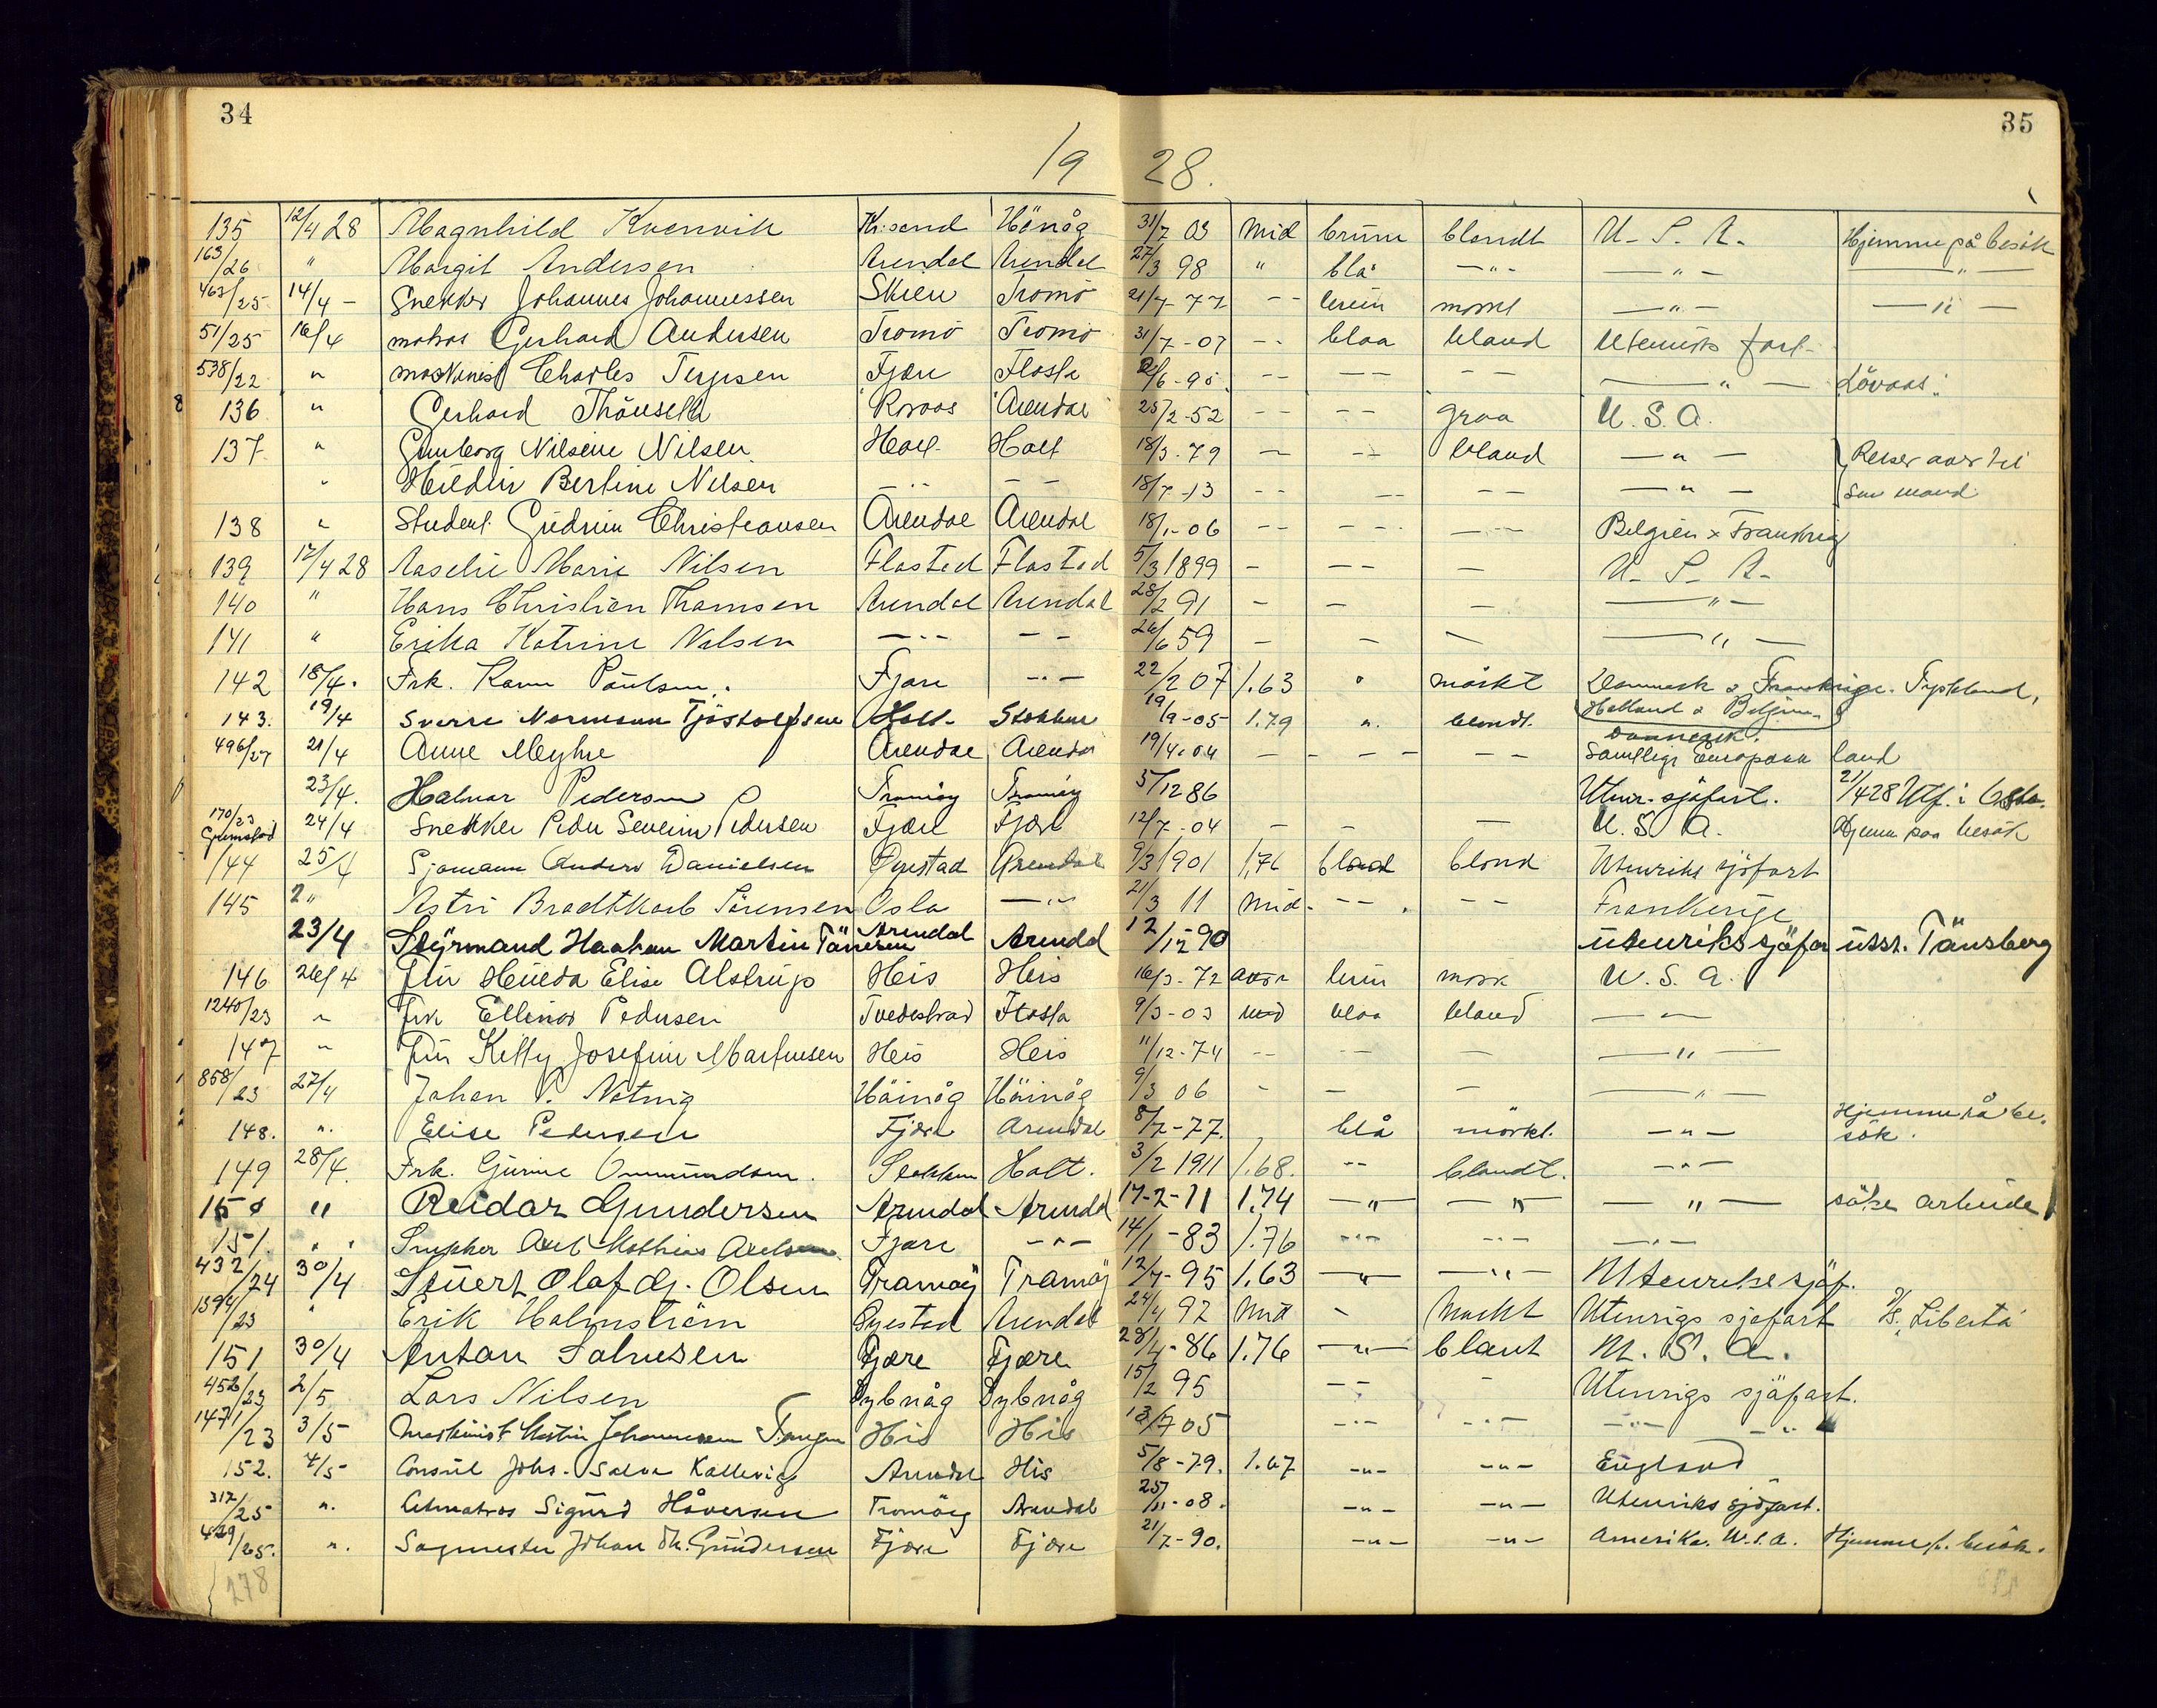 34
35
19 28.
135 12/4 28 Magnhild Kvenvik Kr.sand Hönåg 31/7 03 Mid brune blondt U. S. A. Hjemme på besök
163/26 " Margit Andersen Arendal Arendal 27/3 98 " blå —"— —"— —"—
463/25 14/4 – Snekker Johannes Johannessen Skien Tromö 21/7-77 -- brun mörkt —"— —"—
51/25 16/4 matros Gerhard Andersen Tromö Tromö 31/7-07 -- blaa bland Utenriks fart
538/22 " maskinist Charles Terjesen Fjære Flosta /6-95. -- -- -- —"—
136 " Gerhard Röraas Arendal 25/2-52 -- -- graa U. S. A.
137 " Gunborg Nilsine Nilsen Holt Holt 18/3-79 — -- bland —"— Reiser over til
" Hildur Bertine Nilsen —"— — — 18/7-13 -- -- -- —"— sin mand
138 " Student Gudrun Christiansen Arendal Arendal 18/1-06 -- -- -- Belgien & Frankrig
139 12/4 28 Aaselie Marie Nilsen Flosted Flosted 5/3 1899 — -- — U. S. A.
140 " Hans Christian Thomsen Arendal Arendal 28/2 91 — — — —"—
141 " Erika Katrine Nilsen —"— — — 26/6 59 — — — —"—
142 18/4. Frk. Karen Paulsen. Fjære —"— 22/2 07 1.63 " mörkt Danmark & Frankrige. Tyskland,
Holland & Belgien
143. 19/4 Sverre Normann Tjöstolfsen Holt Stokken 19/9-05 1.79 ". blondt. Danmark.
496/27 21/4 Anne Meyhre Arendal Arendal 19/4.04 — — — — Samtlige Europæiske land
23/4. Halvor Pedersen Tromöy Tromöy 5/12 86 Utenr. sjöfart. 21/4 28 Utf. i Oslo.
170/23 Grimstad 24/4 Snekker Peder Severin Pedersen Fjære Fjære 12/7-04 — — — U. S. A. Hjemme paa besök
144 25/4 Sjömann Anders Danielsen Öyestad Arendal 9/3 1901 1,76 blond Utenriks sjöfart
145 2" Astri Bradtkorb Sörensen Oslo —"— 21/3 11 Mid. -- -- Frankerige
23/4 Styrmand Haakon Martin Tönnesen Arendal Arendal 12/12-90 utenriks sjöfar utst. Tönsberg
146 26/4 fru Hulda Elise Alstrup Heis Heis 16/3-72 brun mörk U. S. A.
1240/23 " frk Ellinor Pedersen Tvedestrand Flosta 9/3-03 mid blaa bland — —
147 " fru Kelly Josefine Martinsen Heis Heis 11/12-74 -- -- — —"—
858/23 27/4 Johan P. Noting Höinåg Höinåg 9/3 06 - — — —"—
148. ". Elise Pedersen Fjære Arendal 8/7-77. blå mörkt. —"— Hjemme på be.
sök.
149 28/4. Frk. Gurine Ommundsen. Stokken Holt. 3/2 1911 1.68. -- blandt. —"—
150 " Reidar Gundersen Arendal Arendal 17-2-11 1.74 —"— —"— —"— söke arbeide
151. " " Snekker Axel Mathias Axelsen Fjære —"— 14/1-83 1.76 —"— —"— —"—
432/24 30/4 Stuert Olaf Gj. Olsen Tramöy Tramöy 12/7-95 1.63 —"— —"— Utenrikse sjöf.
1394/23 " Erik Holmström Öyested Arendal 24/4 92 Mid Mörkt Utenrigs sjöfart D/S. Liberta
151 30/4 Anton Salvesen Fjære Fjære 28/4-86 1.76 —"— blant U. S. A.
452/23 2/5 Lars Nilsen Dybvåg Dybvåg 15/2 95 -- - Utenrigs sjöfart.
1471/23 3/5 Maskinist Martin Johannesen His His 13/7 05 —"— —"— —"— —"—
152. 4/5 Consul Johs. Salve Kallevig Arendal His 5/8-79. 1.67 —"— —"— England
317/25 ". Letmatros Sigurd Håversen Tromöy Arendal 25/11-08. —"— —"— Utenriks sjöfart.
429/25. ". Sagmester Johan Th. Gundersen Fjære Fjære 21/7-90. —"— —"— Amerika. U.S.A. Hjemme p. besök.
278